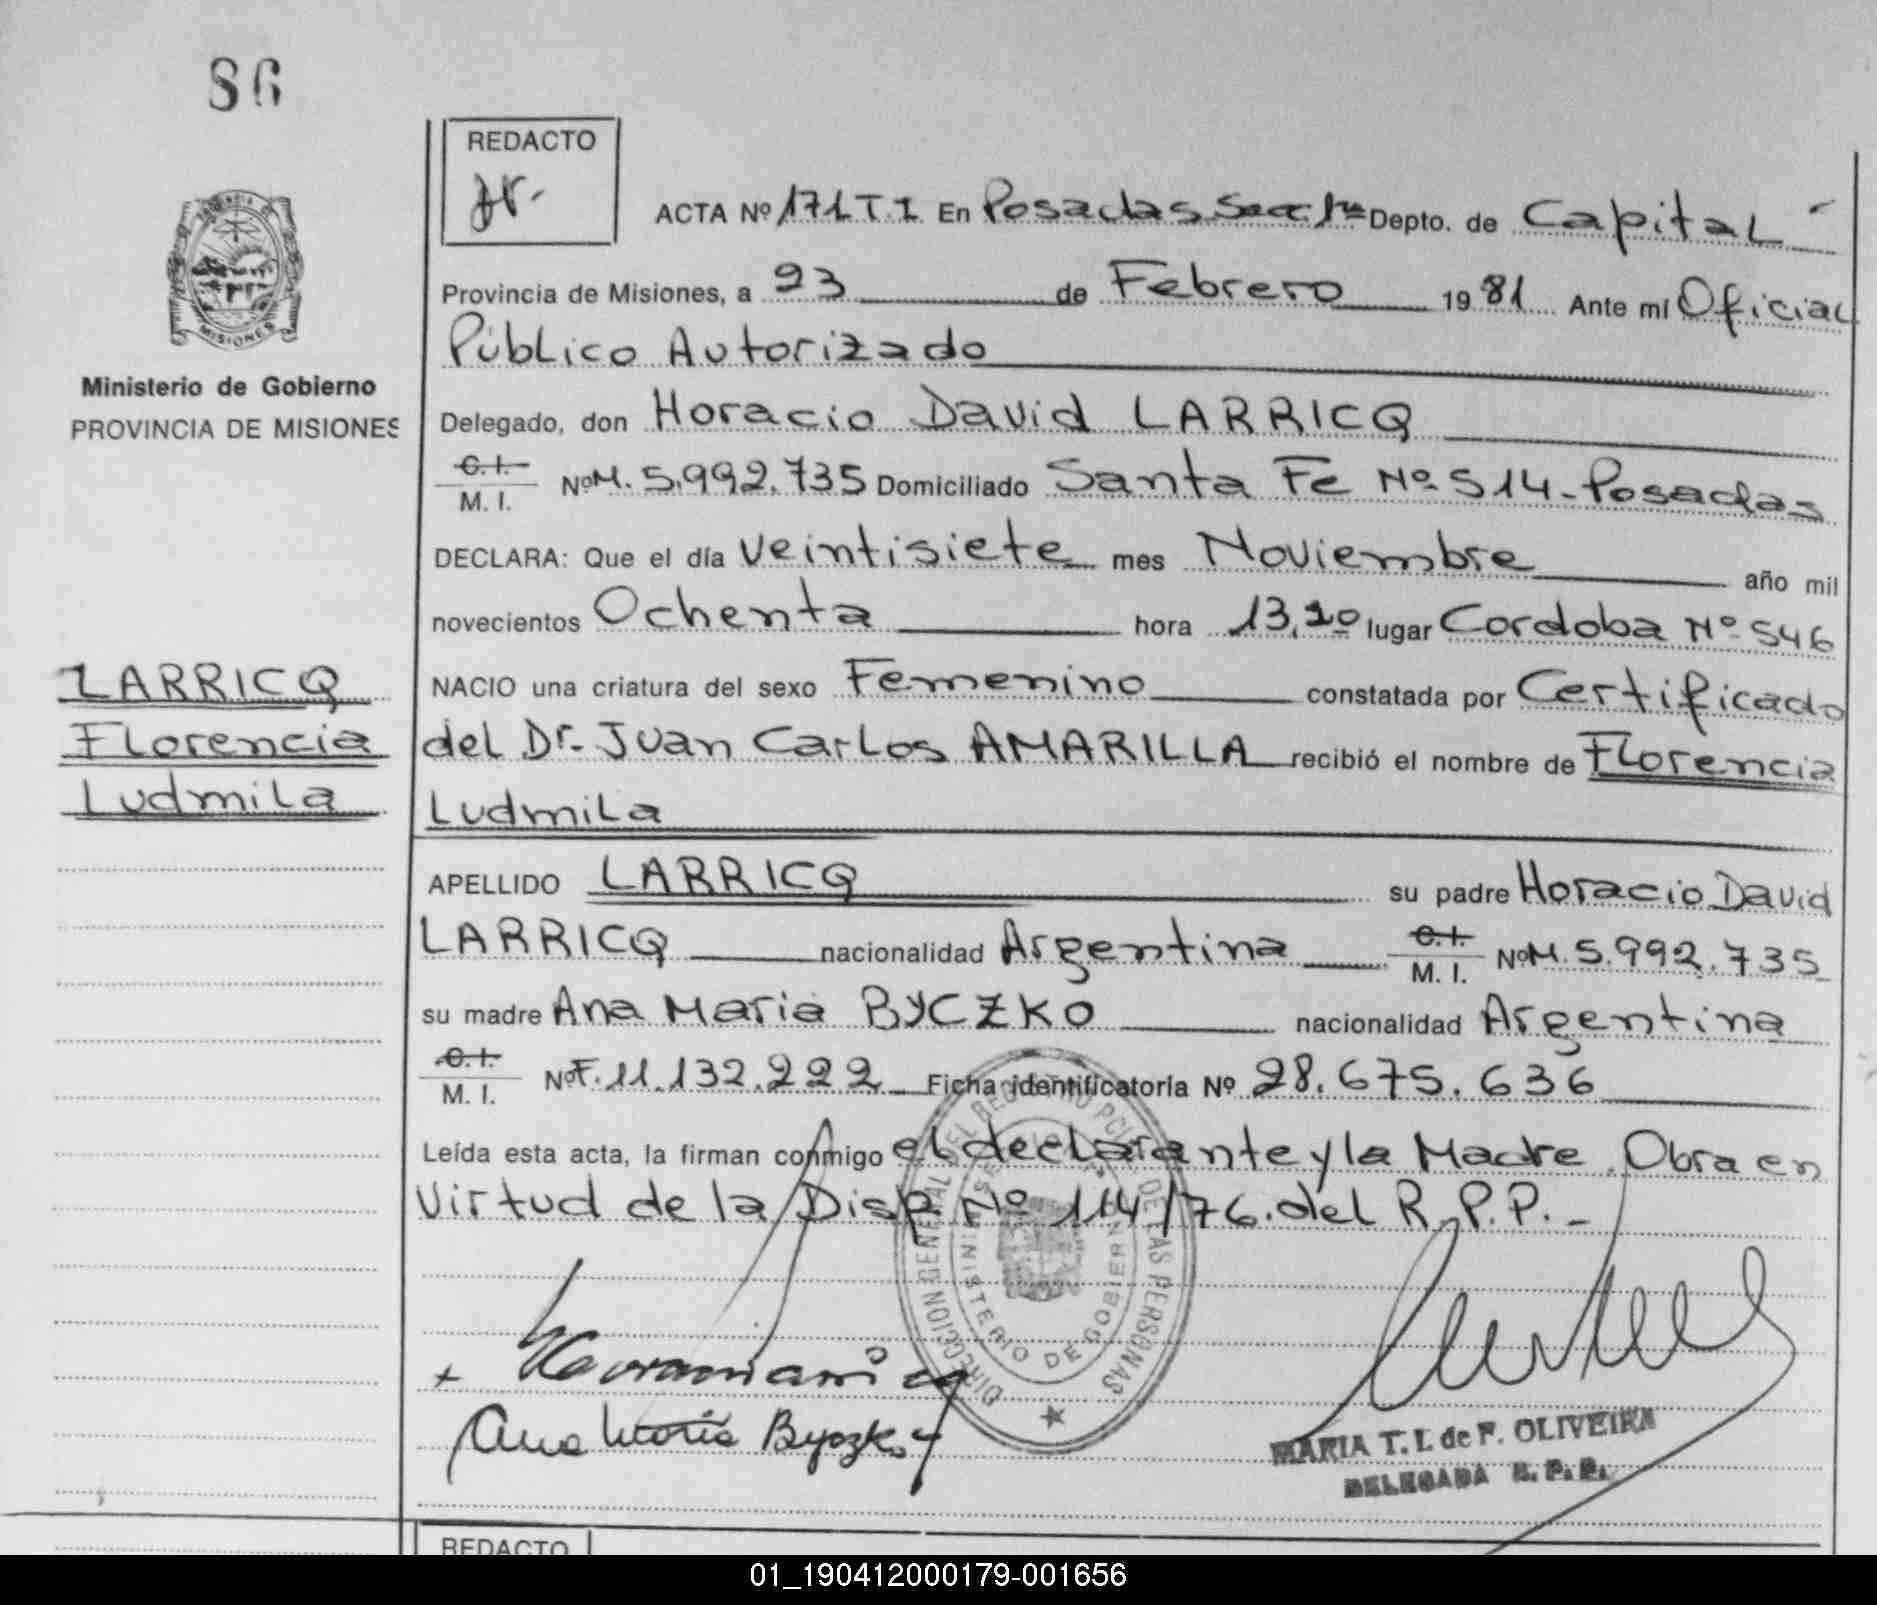 86
REDACTO
ACTA Nº 171 T.I En Posadas Secc 1ra Depto. de Capital
Provincia de Misiones, a 23 de Febrero 1981 Ante mí Oficial
Público Autorizado
Ministerio de Gobierno
PROVINCIA DE MISIONES
Delegado, don Horacio David LARRICQ
C. I.
M. I. NºM. 5.992.735 Domiciliado Santa Fe Nº 514-Posadas
DECLARA: Que el día veintisiete mes Noviembre año mil
novecientos Ochenta hora 13,20 lugar Cordoba Nº 546
LARRICQ
Florencia
Ludmila
NACIO una criatura del sexo Femenino constatada por Certificado
del Dr. Juan Carlos AMARILLA recibió el nombre de Florencia
Ludmila
APELLIDO LARRICQ su padre Horacio David
LARRICQ nacionalidad Argentina C. I. M. I. NºM. 5.992.735
su madre Ana Maria BYCZKO nacionalidad Argentina
C. I.
M. I. NºF. 11.132.222 Ficha identificatoria Nº 28.675.636
Leída esta acta, la firman conmigo el declarante y la Madre. Obra en
Virtud de la Disp. Nº 114/76. del R.P.P.-
DIRECCION GENERAL DEL REGISTRO PCIAL. DE LAS PERSONAS
MINISTERIO DE GOBIERNO
Ana Maria Byczko
MARIA T. I. de F. OLIVEIRA
DELEGADA R. P. P.
REDACTO
01_190412000179-001656